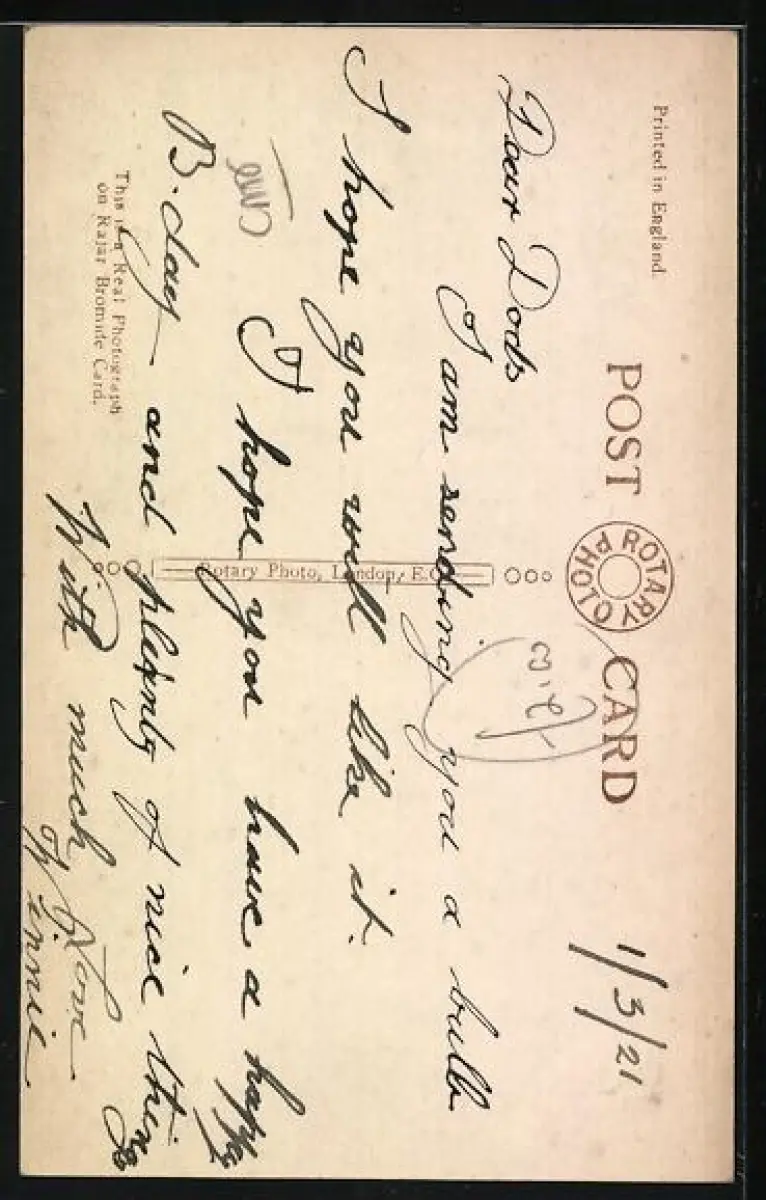 Printed in England.
POST CARD
ROTARY PHOTO
1/3/21
Dear Dods
I am sending you a bulb
I hope you will like it.
I hope you have a happy
B.day and plenty of nice things
With much love
Winnie
Rotary Photo, London, E.C.
This is a Real Photograph
on Rajar Bromide Card.